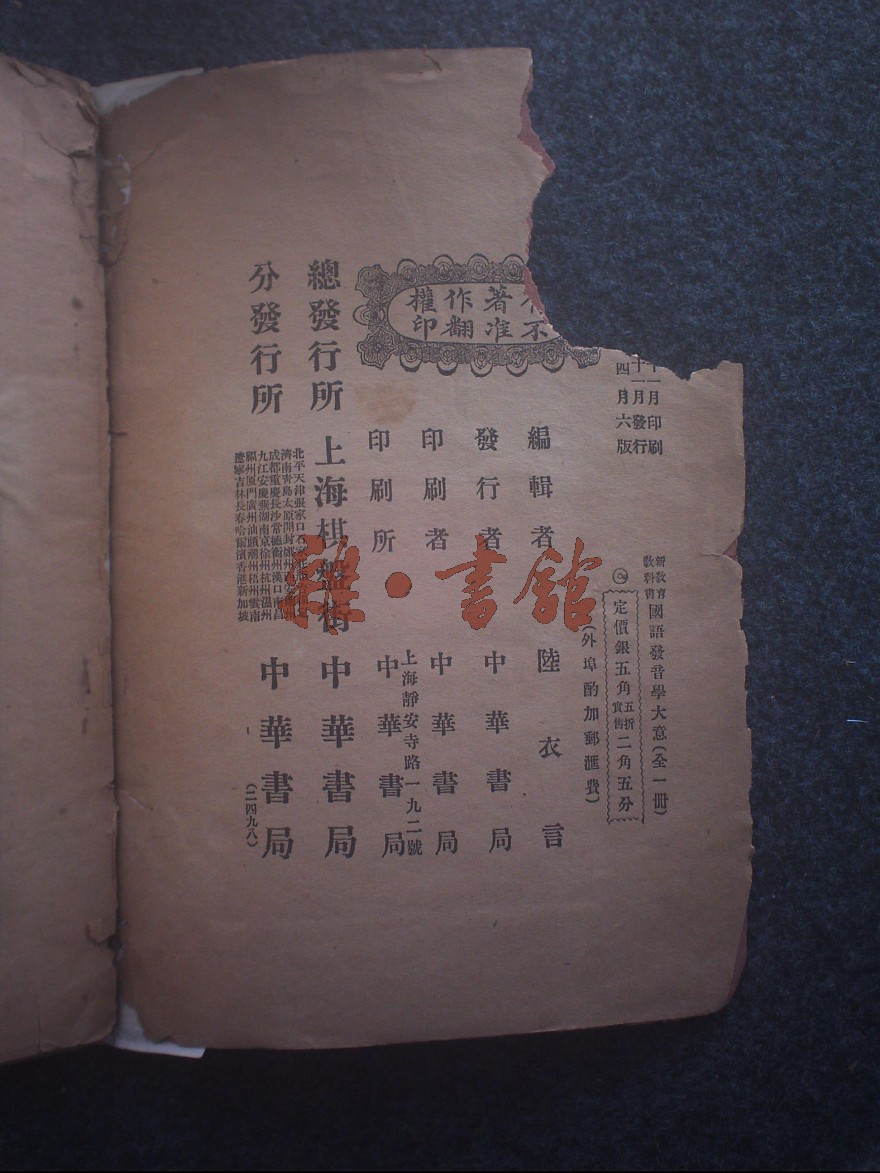 十一月印刷
十一月發行
四月六版
有著作權
不准翻印
新教育
教科書
國語發音學大意(全一冊)
定價銀五角
五折
實售
二角五分
(外埠酌加郵滙費)
編輯者 陸衣言
發行者 中華書局
印刷者 中華書局
上海靜安寺路一九二號
印刷所 中華書局
總發行所 上海棋盤街 中華書局
分發行所 中華書局
北平天津張家口
濟南青島太原開封鄭州
成都重慶長沙常德衡州漢口南昌
九江安慶蕪湖南京徐州杭州溫州
福州厦門廣州汕頭潮州梧州雲南
遼寧吉林長春哈爾濱香港新加坡
(二四九八)
雜·書館